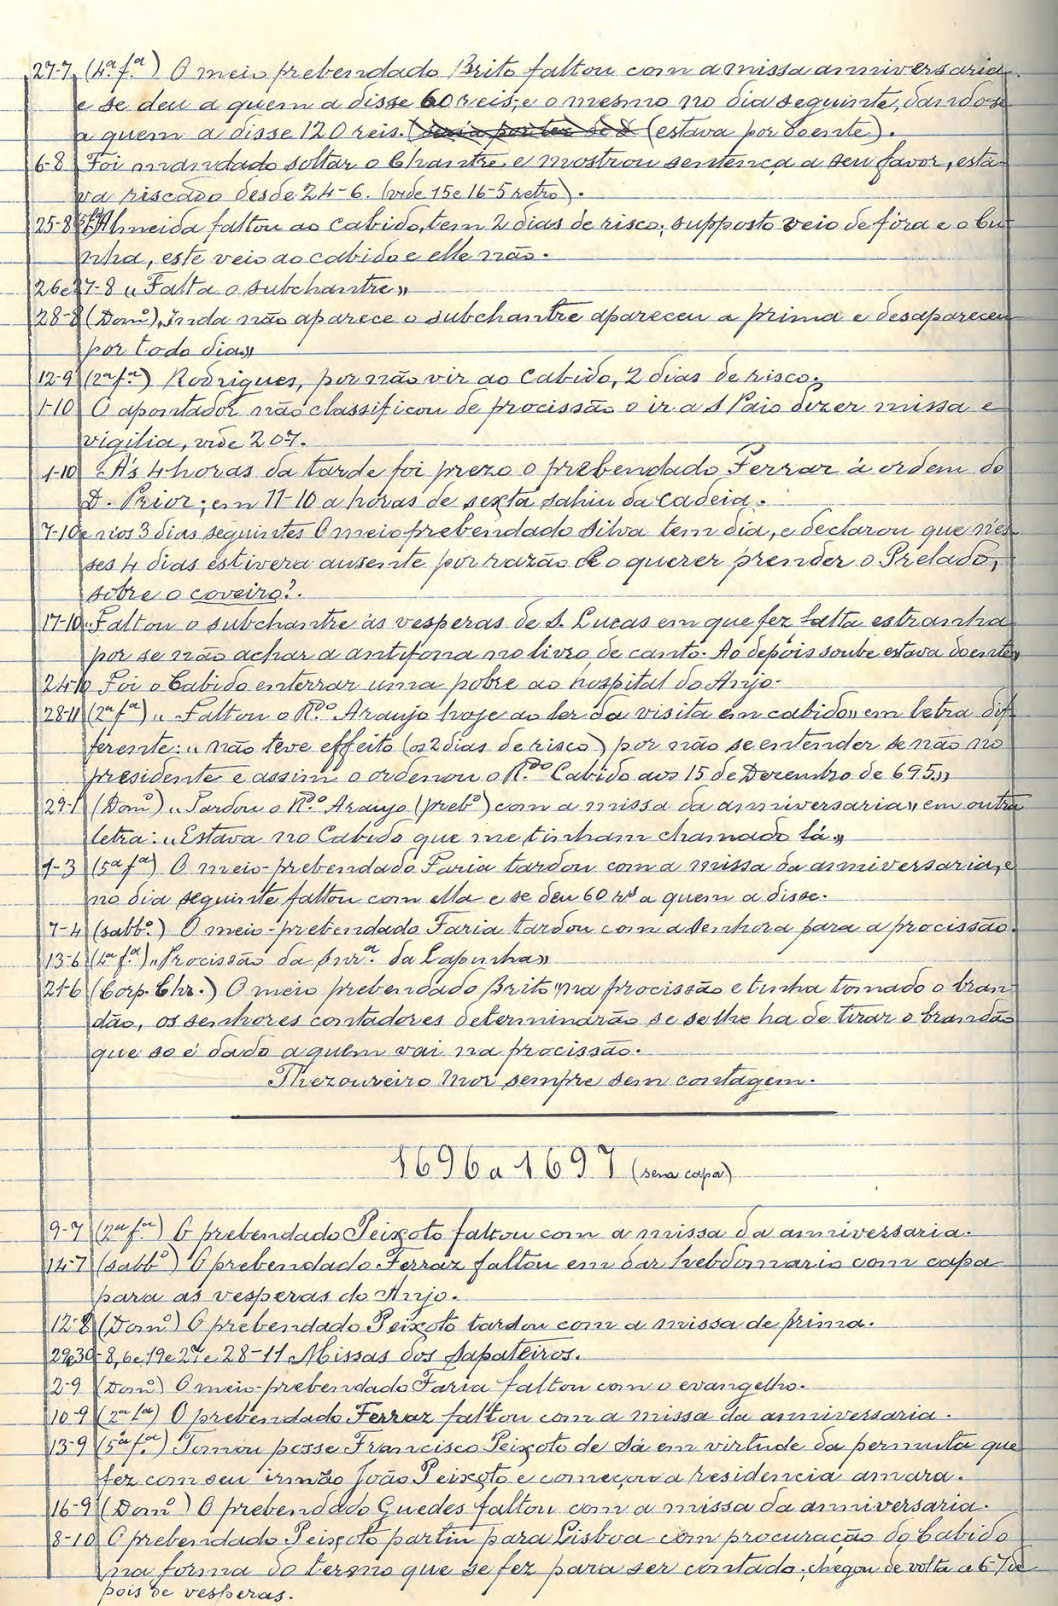 27-7 (4ª fª) O meio prebendado Brito faltou com a missa anniversaria
e se deu a quem a disse 60 reis; e o mesmo no dia seguinte, dando-se
a quem a disse 120 reis. (estava por doente).
6-8 Foi mandado soltar o Chantre e mostrou sentença a seu favor, esta-
va riscado desde 24-6. (vide 15 e 16-5 retro).
25-8 (5ª fª) Almeida faltou ao cabido, tem 2 dias de risco; supposto veio de fóra e o Cu-
nha, este veio ao cabido e elle não.
26 e 27-8 "Falta o subchantre"
28-8 (Domº) "Inda não aparece o subchantre apareceu a prima e desapareceu
por todo dia"
12-9 (2ª fª) Rodrigues, por não vir ao Cabido, 2 dias de risco.
1-10 O apontador não classificou de procissão o ir a S Paio dizer missa e
vigilia, vide 207.
1-10 Ás 4 horas da tarde foi prezo o prebendado Ferraz á ordem do
D. Prior; em 11-10 a horas de sexta sahiu da cadeia.
7-10 e nos 3 dias seguintes O meio prebendado Silva tem dia, e declarou que nes-
ses 4 dias estivera ausente por razão de o querer prender o Prelado,
sobre o coveiro?.
17-10 "Faltou o subchantre ás vesperas de S. Lucas em que fez falta estranha
por se não achar a antifona no livro de canto. Ao depois soube estava doente"
24-10 Foi o Cabido enterrar uma pobre ao hospital do Anjo.
28-11 (2ª fª) "Faltou o Rº Araujo hoje ao ler da visita em cabido" em letra dif-
ferente: "não teve effeito (os 2 dias de risco) por não se entender se não no
presidente e assim o ordenou o Rdo Cabido aos 15 de Dezembro de 695"
29-1 (Domº) "Tardou o Rº Araujo (prebº) com a missa da anniversaria" em outra
letra: "Estava no Cabido que me tinham chamado lá"
1-3 (5ª fª) O meio-prebendado Faria tardou com a missa da anniversaria, e
no dia seguinte faltou com ella e se deu 60 rs a quem a disse.
7-4 (sabbº) O meio-prebendado Faria tardou com a Senhora para a procissão.
13-6 (4ª fª) "Procissão da Snrª da Lapinha"
21-6 (Corp. Chr.) O meio prebendado Brito na procissão e tinha tomado o bran-
dão, os senhores contadores determinarão se se lhe ha de tirar o brandão
que so é dado a quem vai na procissão.
Thezoureiro Mor sempre sem contagem.
1696 a 1697 (sem capa)
9-7 (2ª fª) O prebendado Peixoto faltou com a missa da anniversaria.
14-7 (sabbº) O prebendado Ferraz faltou em dar hebdomario com capa
para as vesperas do Anjo.
12-8 (Domº) O prebendado Peixoto tardou com a missa de prima.
29 e 30-8, 6 e 19 e 27 e 28-11 Missas dos Sapateiros.
2-9 (Domº) O meio-prebendado Faria faltou com o evangelho.
10-9 (2ª fª) O prebendado Ferraz faltou com a missa da anniversaria.
13-9 (5ª fª) Tomou posse Francisco Peixoto de Sá em virtude da permuta que
fez com seu irmão João Peixoto e começou a residencia amara.
16-9 (Domº) O prebendado Guedes faltou com a missa da anniversaria.
8-10 O prebendado Peixoto partiu para Lisboa com procuração do Cabido
na forma do termo que se fez para ser contado; chegou de volta a 6-7 de
pois de vesperas.